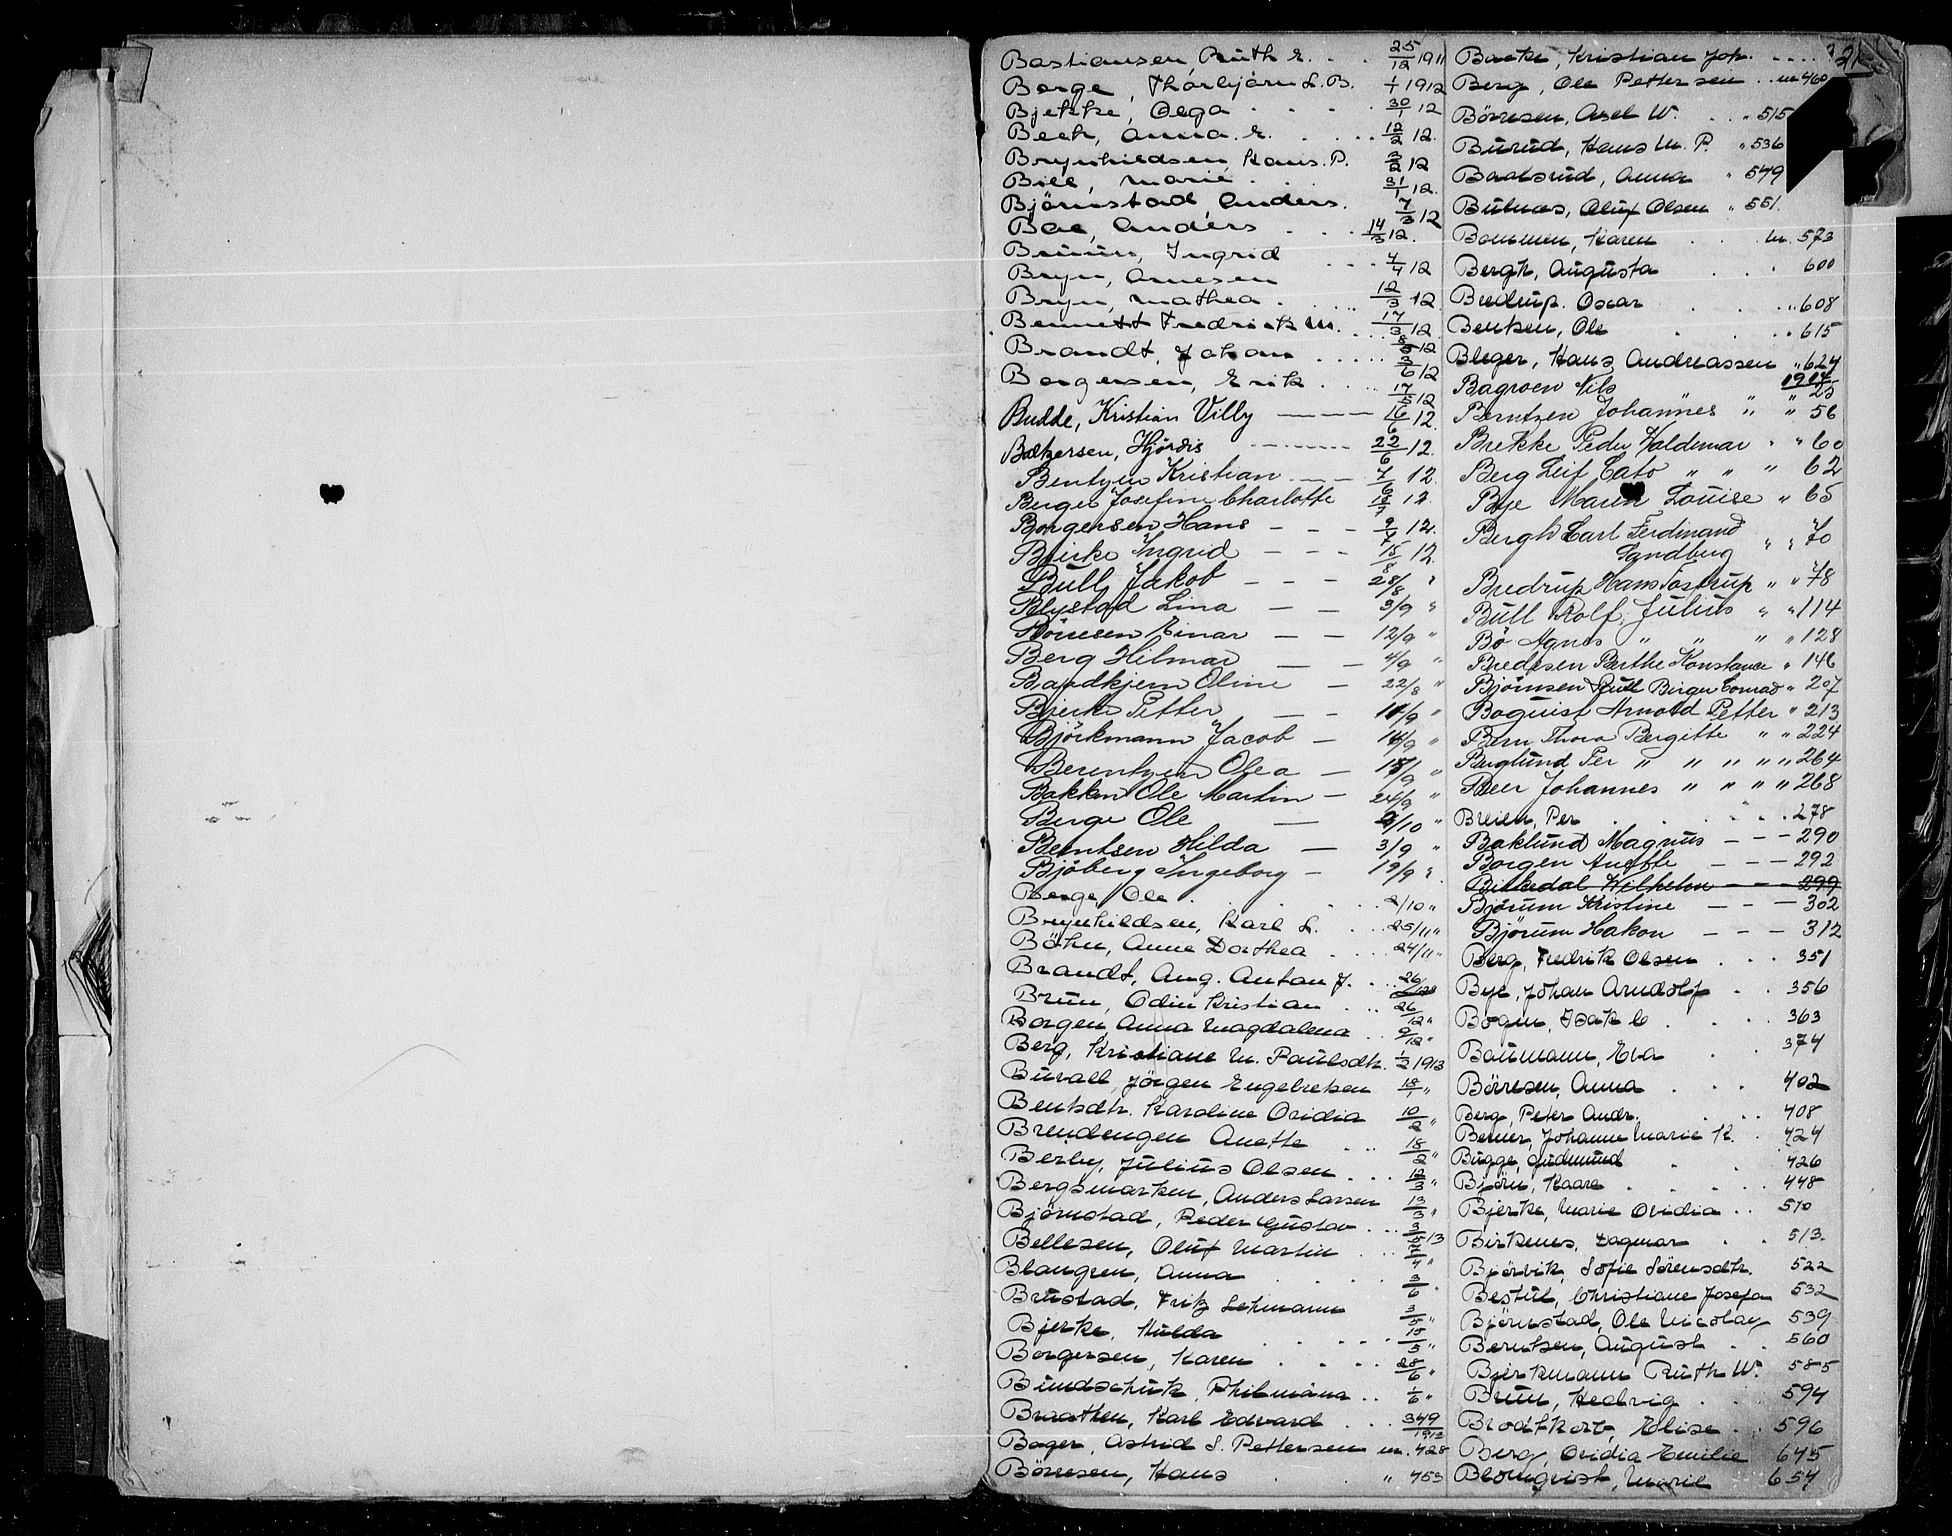 Bastiansen, Ruth E. . . 25/12 1911
Borge, Thorbjörn L. B. 1/1 1912
Bjekke, Olga . . . . 30/1 12
Bech, Anna E. . . . 12/2 12.
Brynhildsen, Hans. P. 2/2 12
Bill, Marie . . . 31/1 12.
Björnstad, Anders. 7/3 12
Bae, Anders . . . 14/3 12.
Bruun, Ingrid . . . 4/4 12
Bryn, Arnesen
Bryn, Mathea . . . 12/3 12
Bennett Fredrick M. . . 17/3 12
Brandt, Johan . . . . . 12
Borgersen, Erik . . . 3/6 12
Budde, Kristian Villy — — — 12.
Bækersen, Hjördis 22/6 12.
Bentzen Kristian — — 7/6 12.
Berger Josefine Charlotte 12.
Borgersen Hans — — — 9/7 12.
Bjerke Ingrid — — — 15/8 12.
Bull, Jakob — — — 28/8 "
Blystad Lina — — 3/9 "
Börresen Einar — — 12/9 "
Berg Hilmar — — 4/9 "
Baardkjern Oline — 22/8 "
Bjerke Petter — — 11/9 "
Björkmann Jacob — 14/9 "
Berentzen Olea — 15/9 "
Bakken Ole Martin — 24/9 "
Berge Ole — 2/10 "
Berntsen Hilda — 3/9 "
Bjöberg Ingeborg — 19/9 "
Berge Ole . . . . 2/10 "
Brynhildsen, Karl L. . . 25/11 "
Böhn, Anne Dorthea . . . 24/11 "
Brandt, Aug. Anton J. . . . 26/12
Brun, Odin Kristian . . 26/12 "
Borgen, Anna Magdalena . . 9/12 "
Berg, Kristiane M. Paulsdtr. 1/2 1913
Burall, Jörgen Engebretsen 18/1 "
Bentsdtr. Karoline Ovidia 10/2 "
Brendengen Anette . . . 18/2 "
Berby, Julius Olsen . . . 12/3 "
Bergsmarken, Anders Larsen 13/3 "
Björnstad, Peder Gustav . . . 3/5 13
Bellesen, Oluf Martin . . 17/4 "
Blangsen, Anna . . . 3/6 "
Brustad, Fritz Lehmann 3/5 "
Bjerke, Hulda . . . . . 15/5 "
Borgersen, Karen . . . . 28/6 "
Bundschuk, Philmäna . . 1/6 "
Braathen, Karl Edvard . . . 349/1912
Boger, Astrid S. Pettersen nr. 428
Börresen, Hans . . . " 453
21
Bache, Kristian Joh. . . . .
Berg, Ole Pettersen . . nr 460
Börresen, Axel W. . . " 515
Burud, Hans M. P. " 536
Baalsrud, Anna " 549
Bulnæs, Oluf Olsen " 551.
Bommen, Karen . . nr. 573
Bergh, Augusta . . . 600
Bredrup. Oscar . . . " 608
Bentsen, Ole . . . " 615
Bleger, Hans Andreassen " 624
1914
Bagroen Nils " 25
Berntzen Johannes " " 56
Brekke Peder Valdemar " " 60
Berg Leif Cato " " " 62
Bye Maren Louise " 65
Bergh Carl Ferdinand
Sandberg " " 70
Bredrup Hans Tostrup " " 78
Bull Rolf. Julius " " 114
Bö Agnes " " " " 128
Bredesen Berthe Konstance " 146
Björnsen Paul Birger Conrad " 207
Boquist Arnold Petter " 213
Bern Thora Bergitte " " 224
Berglund Per " " " " " 264
Beer Johannes " " " " 268
Breien, Per . . . . . . 278
Baklund Magnus — — — 290
Borgen Anette — — — 292
Birkedal Wilhelm — — — 299
Bjørum Kristine — — — 302
Bjørum Hakon — — — 312
Berg, Fredrik Olsen . . . 351
Bye, Johan Arndolf . . 356
Bogen, Isak C . . . 363
Baumann, Eva . . 374
Börresen, Anna . . . 402
Berg, Peter Andr. . . . 408
Berner, Johanne Marie K. . 424
Bugge, Gudmund . . 426
Bjørn, Kaare . . . . . 448
Bjerke, Marie Ovidia . . 510
Birkenes, Dagmar . . 513.
Bjørvik, Sofie Sörensdtr. 522
Bestul, Christiane Josefa 532
Björnstad, Ole Nicolay 539
Berntsen, August . . . 560
Bjerkmann Ruth W. 585
Brun, Hedvig . . . 594
Brodtkorb, Elise . . 596
Berg, Ovidia Emilie 645
Blomqvist, Marie 654